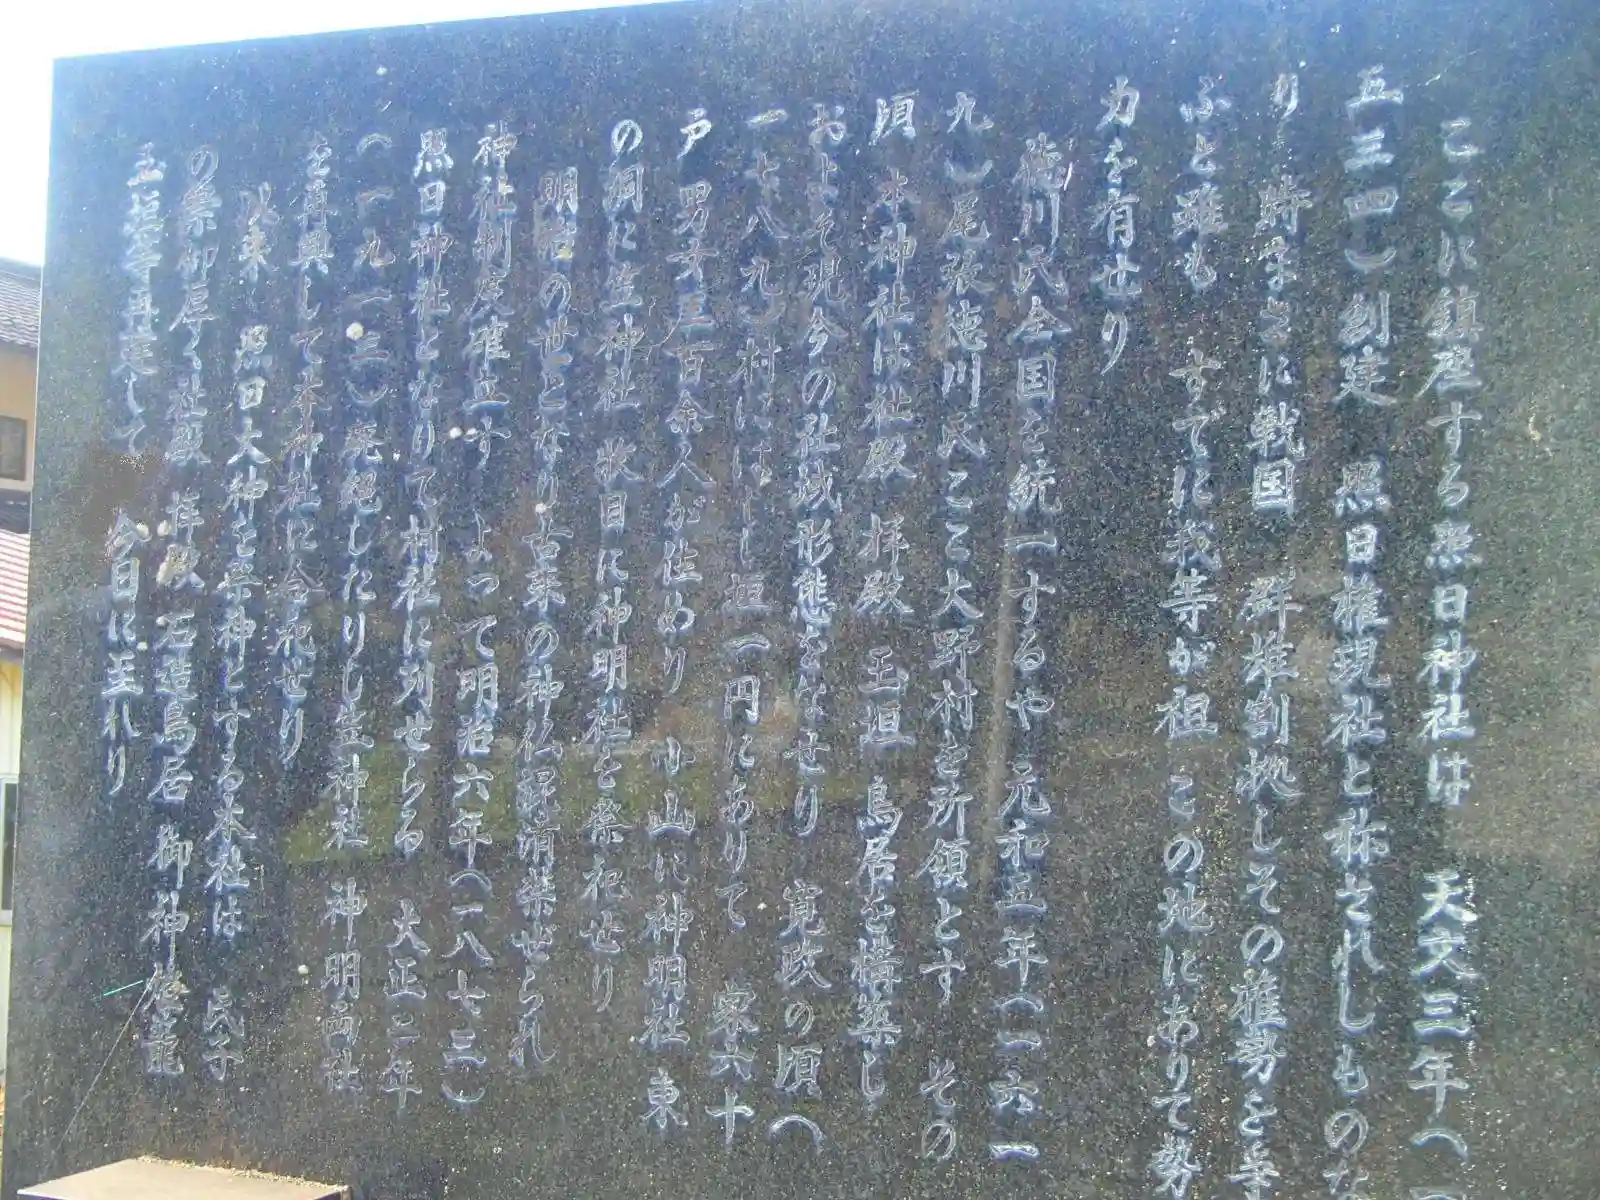 ここに鎮座する照日神社は 天文三年(一
五三四)創建 照日権現社と称されしものな
り 時まさに戦国 群雄割拠しその権勢を争
ふと雖も すでに我等が祖 この地にありて勢
力を有せり
徳川氏全国を統一するや 元和五年(一六一
九)尾張徳川氏ここ大野村を所領とす その
頃 本神社は社殿 拝殿 玉垣 鳥居を構築し
およそ現今の社域形態をなせり 寛政の頃(
一七八九)村にはよし垣一円にありて 家六十
戸 男女三百余人が住めり 小山に神明社 東
の洞に笠神社 状目に神明社を祭祀せり
明治の世となり 古来の神仏混淆禁ぜられ
神社制度確立す よって明治六年(一八七三)
照日神社となりて村社に列せらる 大正二年
(一九一三)廃絶したりし笠神社 神明両社
を再興して本神社に合祀せり
以来 照日大神を祭神とする本社は 氏子
の崇御厚く 社殿 拝殿 石造鳥居 御神燈籠
玉垣等再建して 今日に至れり